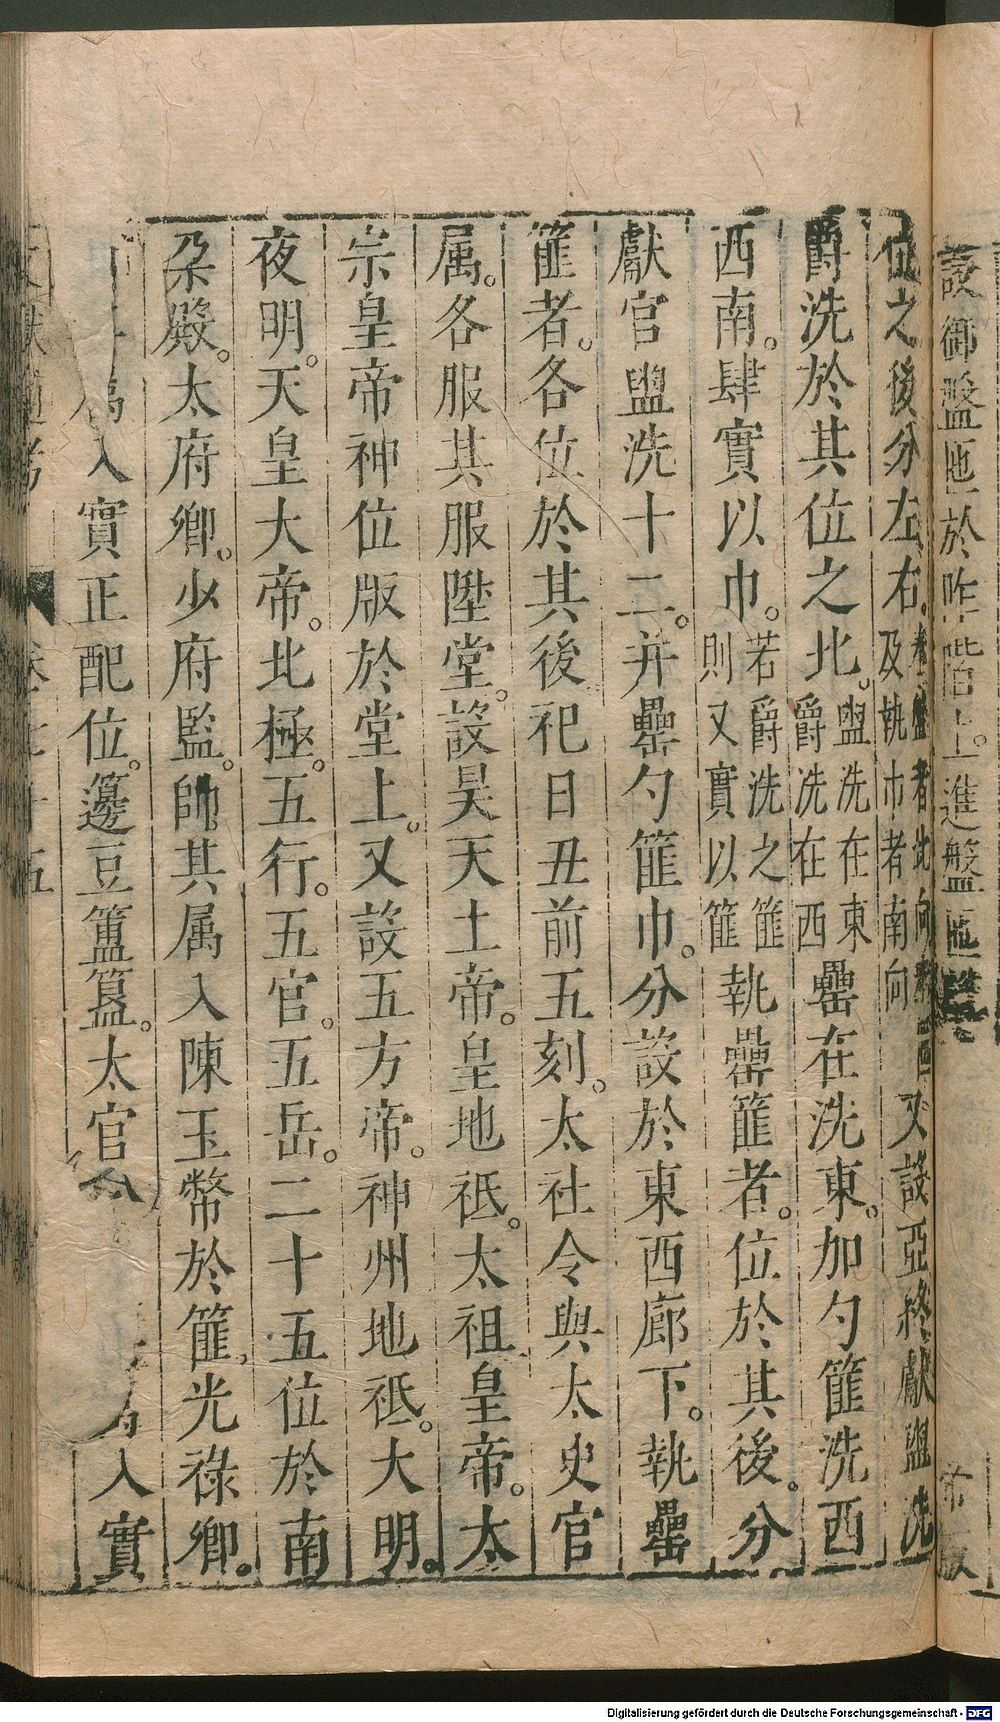 設御盤匜於阼階上。進盤匜
帝版
位之後分左右。奉盤者北向
及執巾者南向
又設亞終獻盥洗
爵洗於其位之北。盥洗在東
爵洗在西
罍在洗東。加勺篚洗西
西南。肆實以巾。若爵洗之篚
則又實以篚
執罍篚者。位於其後。分
獻官盥洗十二。并罍勺篚巾。分設於東西廊下。執罍
篚者。各位於其後祀日丑前五刻。太社令與太史官
属。各服其服陞堂。設昊天土帝。皇地祇。太祖皇帝。太
宗皇帝神位版於堂上。又設五方帝。神州地祇。大明。
夜明。天皇大帝。北極。五行。五官。五岳。二十五位於南
朶殿。太府卿。少府監。帥其属入陳玉幣於篚。光祿卿。
入實正配位。籩豆簠簋。太官令
入實
卷七十五
Digitalisierung gefördert durch die Deutsche Forschungsgemeinschaft - DFG